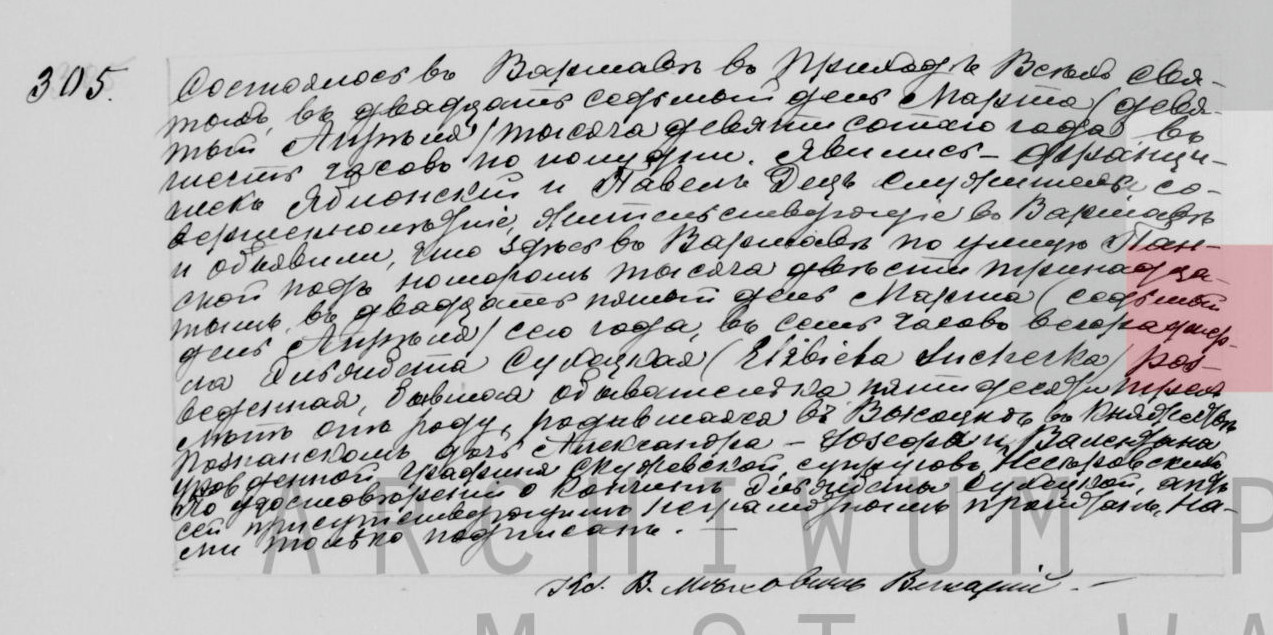 305.
Состоялось въ Варшавѣ въ приходѣ Всѣхъ Свя-
тыхъ, въ двадцать седьмый день Марта / девя-
тый Апрѣля / тысяча девяти сотаго года въ
часовъ по полудни. Явились – Франци-
шекъ Яблонскій и Павелъ Децъ служители со-
вершеннолѣтніе, жительствующіе въ Варшавѣ
и объявили, что здѣсь въ Варшавѣ по улицѣ Пан-
ской подъ номеромъ тысяча двѣсти тринадца-
тымъ, въ двадцать пятый день Марта (седьмый
день Апрѣля) сего года, въ семь часовъ вечера умер-
ла Эльжбета Сухецкая (Elżbieta Suchecka) раз-
веденная, бывшая обывателька пятидесяти трехъ
лѣтъ отъ роду, родившаяся въ Высоцкѣ въ Княжествѣ
Познанскомъ дочь Александра – Іосифа и Валентина
урожденной графини Скужевской, супруговъ Несторовскихъ.
По удостовѣреніи о кончинѣ Эльжбеты Сухецкой, актъ
сей присутствующимъ неграмотнымъ прочитанъ, На-
ми только подписанъ. –
Кс. В. Викарій. –
ARCHIWUM P
M ST WA